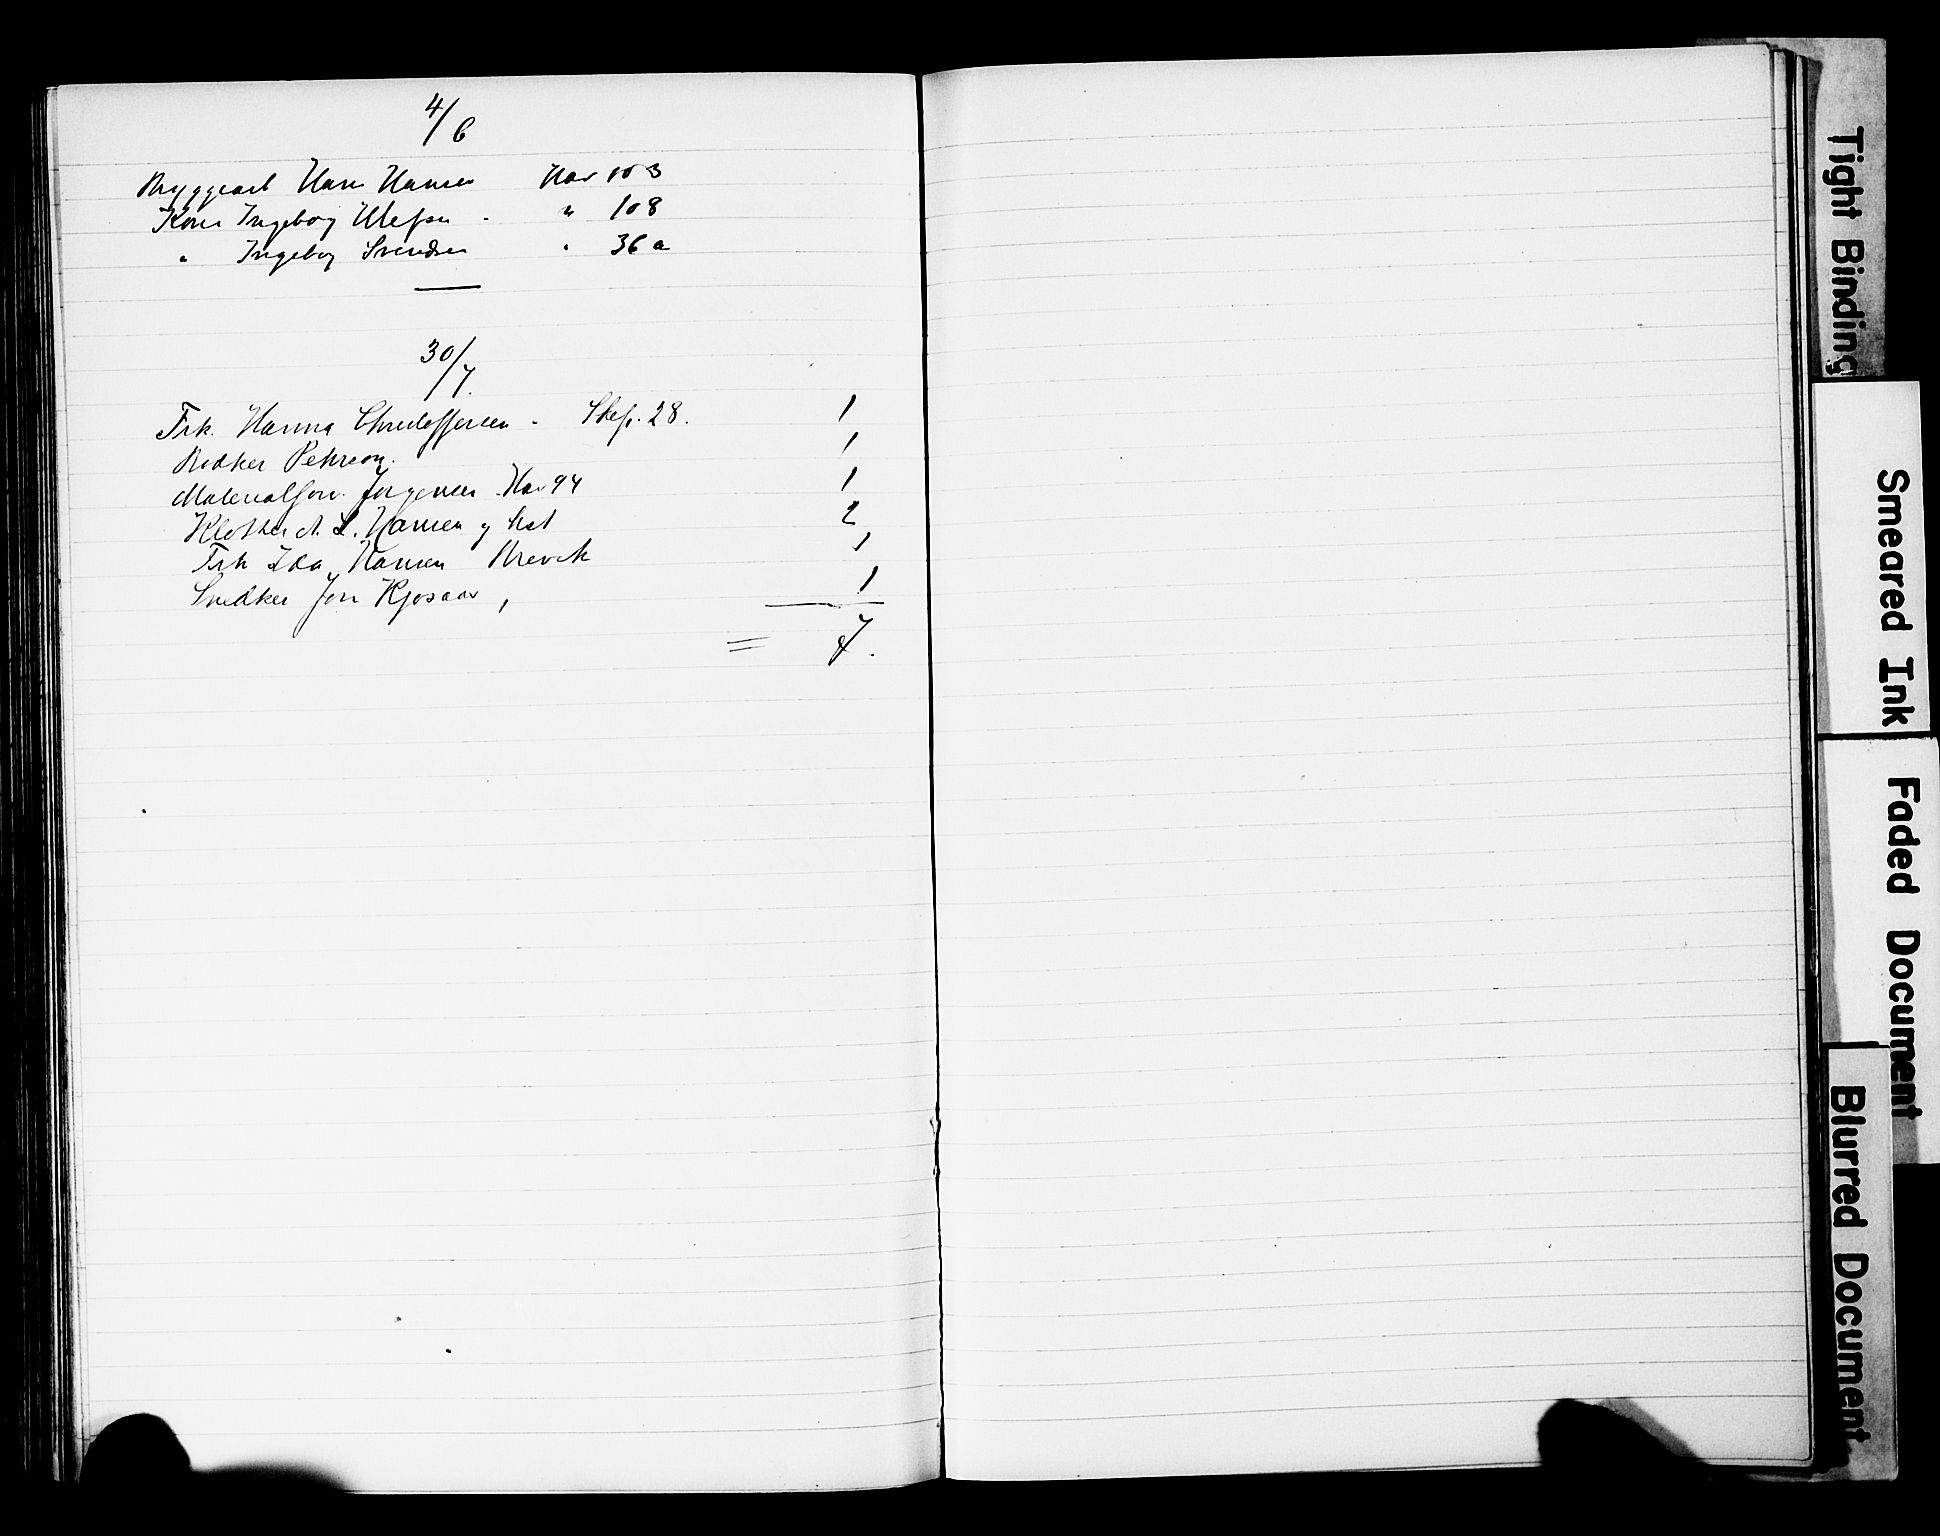 4/6
Bryggearb Hans Hansen Hav 103
Kone Ingeborg Ulefsen - " 108
" Ingeborg Svendsen " 36 a
30/7.
Frk. Hanna Christoffersen - Skps. 28. 1
Bødker Petersen. 1
Materialforv. Jørgensen. Hav 94 1
A. L. Hansen og 2
Frk Ida Hansen Brevik 1
Snedker Jon Kjosaas, 1
= 7.
Tight Binding
Smeared Ink
Faded Document
Blurred Document